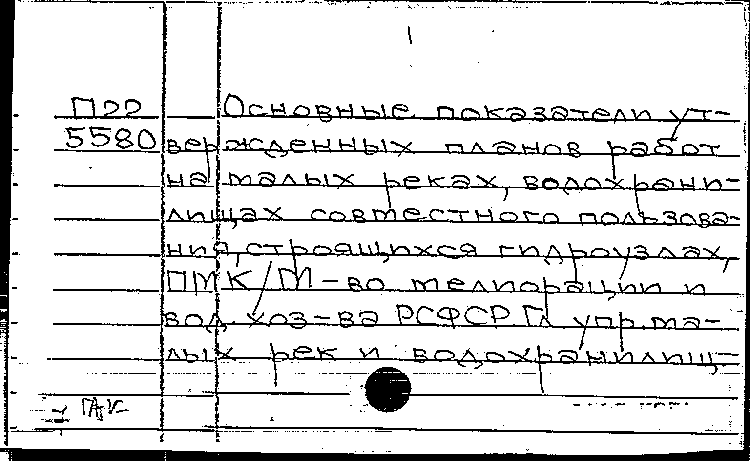 П22 Основные показатели ут-
5580 вержденных планов работ
на малых реках, водохрани-
лищах совместного пользова-
ния, строящихся гидроузлах,
ПМК/М-во мелиорации и
вод. хоз-ва РСФСР. Гл. упр. ма-
лых рек и водохранилищ-